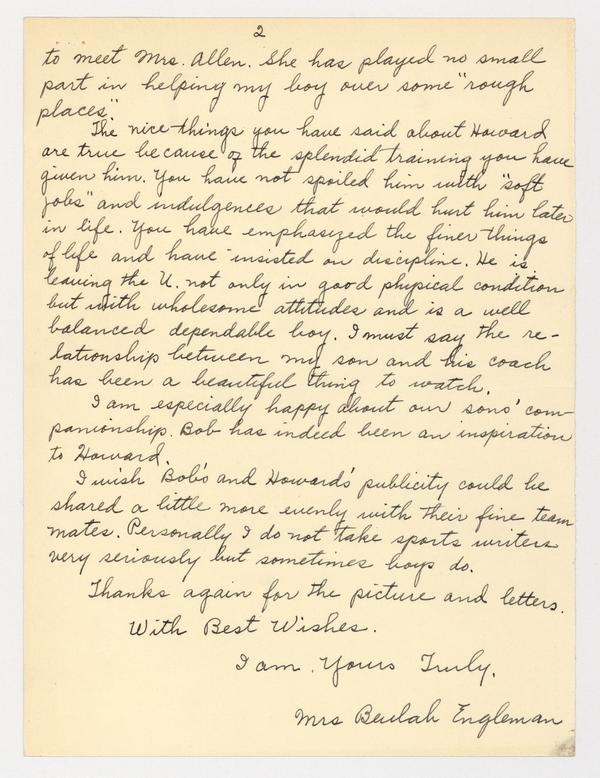 2
to meet Mrs. Allen. She has played no small
part in helping my boy over some "rough
places".
The nice things you have said about Howard
are true because of the splendid training you have
given him. You have not spoiled him with "soft
jobs" and indulgences that would hurt him later
in life. You have emphasized the finer things
of life and have insisted on discipline. He is
leaving the U. not only in good physical condition
but with wholesome attitudes and is a well
balanced dependable boy. I must say the re-
lationship between my son and his coach
has been a beautiful thing to watch.
I am especially happy about our sons' com-
panionship. Bob has indeed been an inspiration
to Howard.
I wish Bob's and Howard's publicity could be
shared a little more evenly with their fine team
mates. Personally I do not take sports writers
very seriously but sometimes boys do.
Thanks again for the picture and letters.
With Best Wishes.
I am. Yours Truly,
Mrs Beulah Engleman